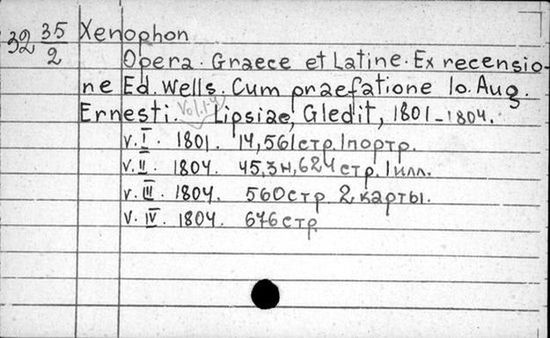 32 35/2 Xenophon
Opera. Graece et Latine. Ex recensio-
ne Ed. Wells. Cum praefatione Io. Aug.
Ernesti. Vol. 1-4 Lipsiae, Gledit, 1801-1804.
v. I. 1801. 14, 561 стр. 1 портр.
v. II. 1804. 45, 3н, 624 стр. 1 илл.
v. III. 1804. 560 стр 2 карты.
v. IV. 1804. 676 стр